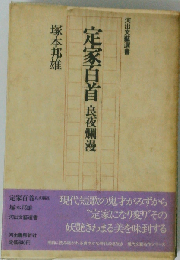 河出文藝選書
定家百首
良夜爛漫
塚本邦雄
現代短歌の鬼才がみずから
"定家になり変り"その
妖艶きわまる美を味到する
定家百首 良夜爛漫
塚本邦雄
河出文藝選書
河出書房新社